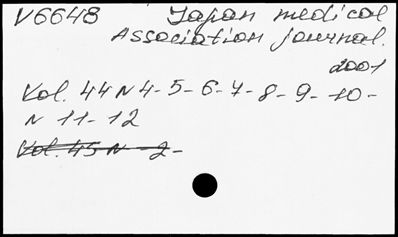 V6648 Japan medical
Association journal.
2001
Vol. 44 N 4- 5- 6- 7- 8- 9- 10-
N 11- 12
Vol. 45 N 2-